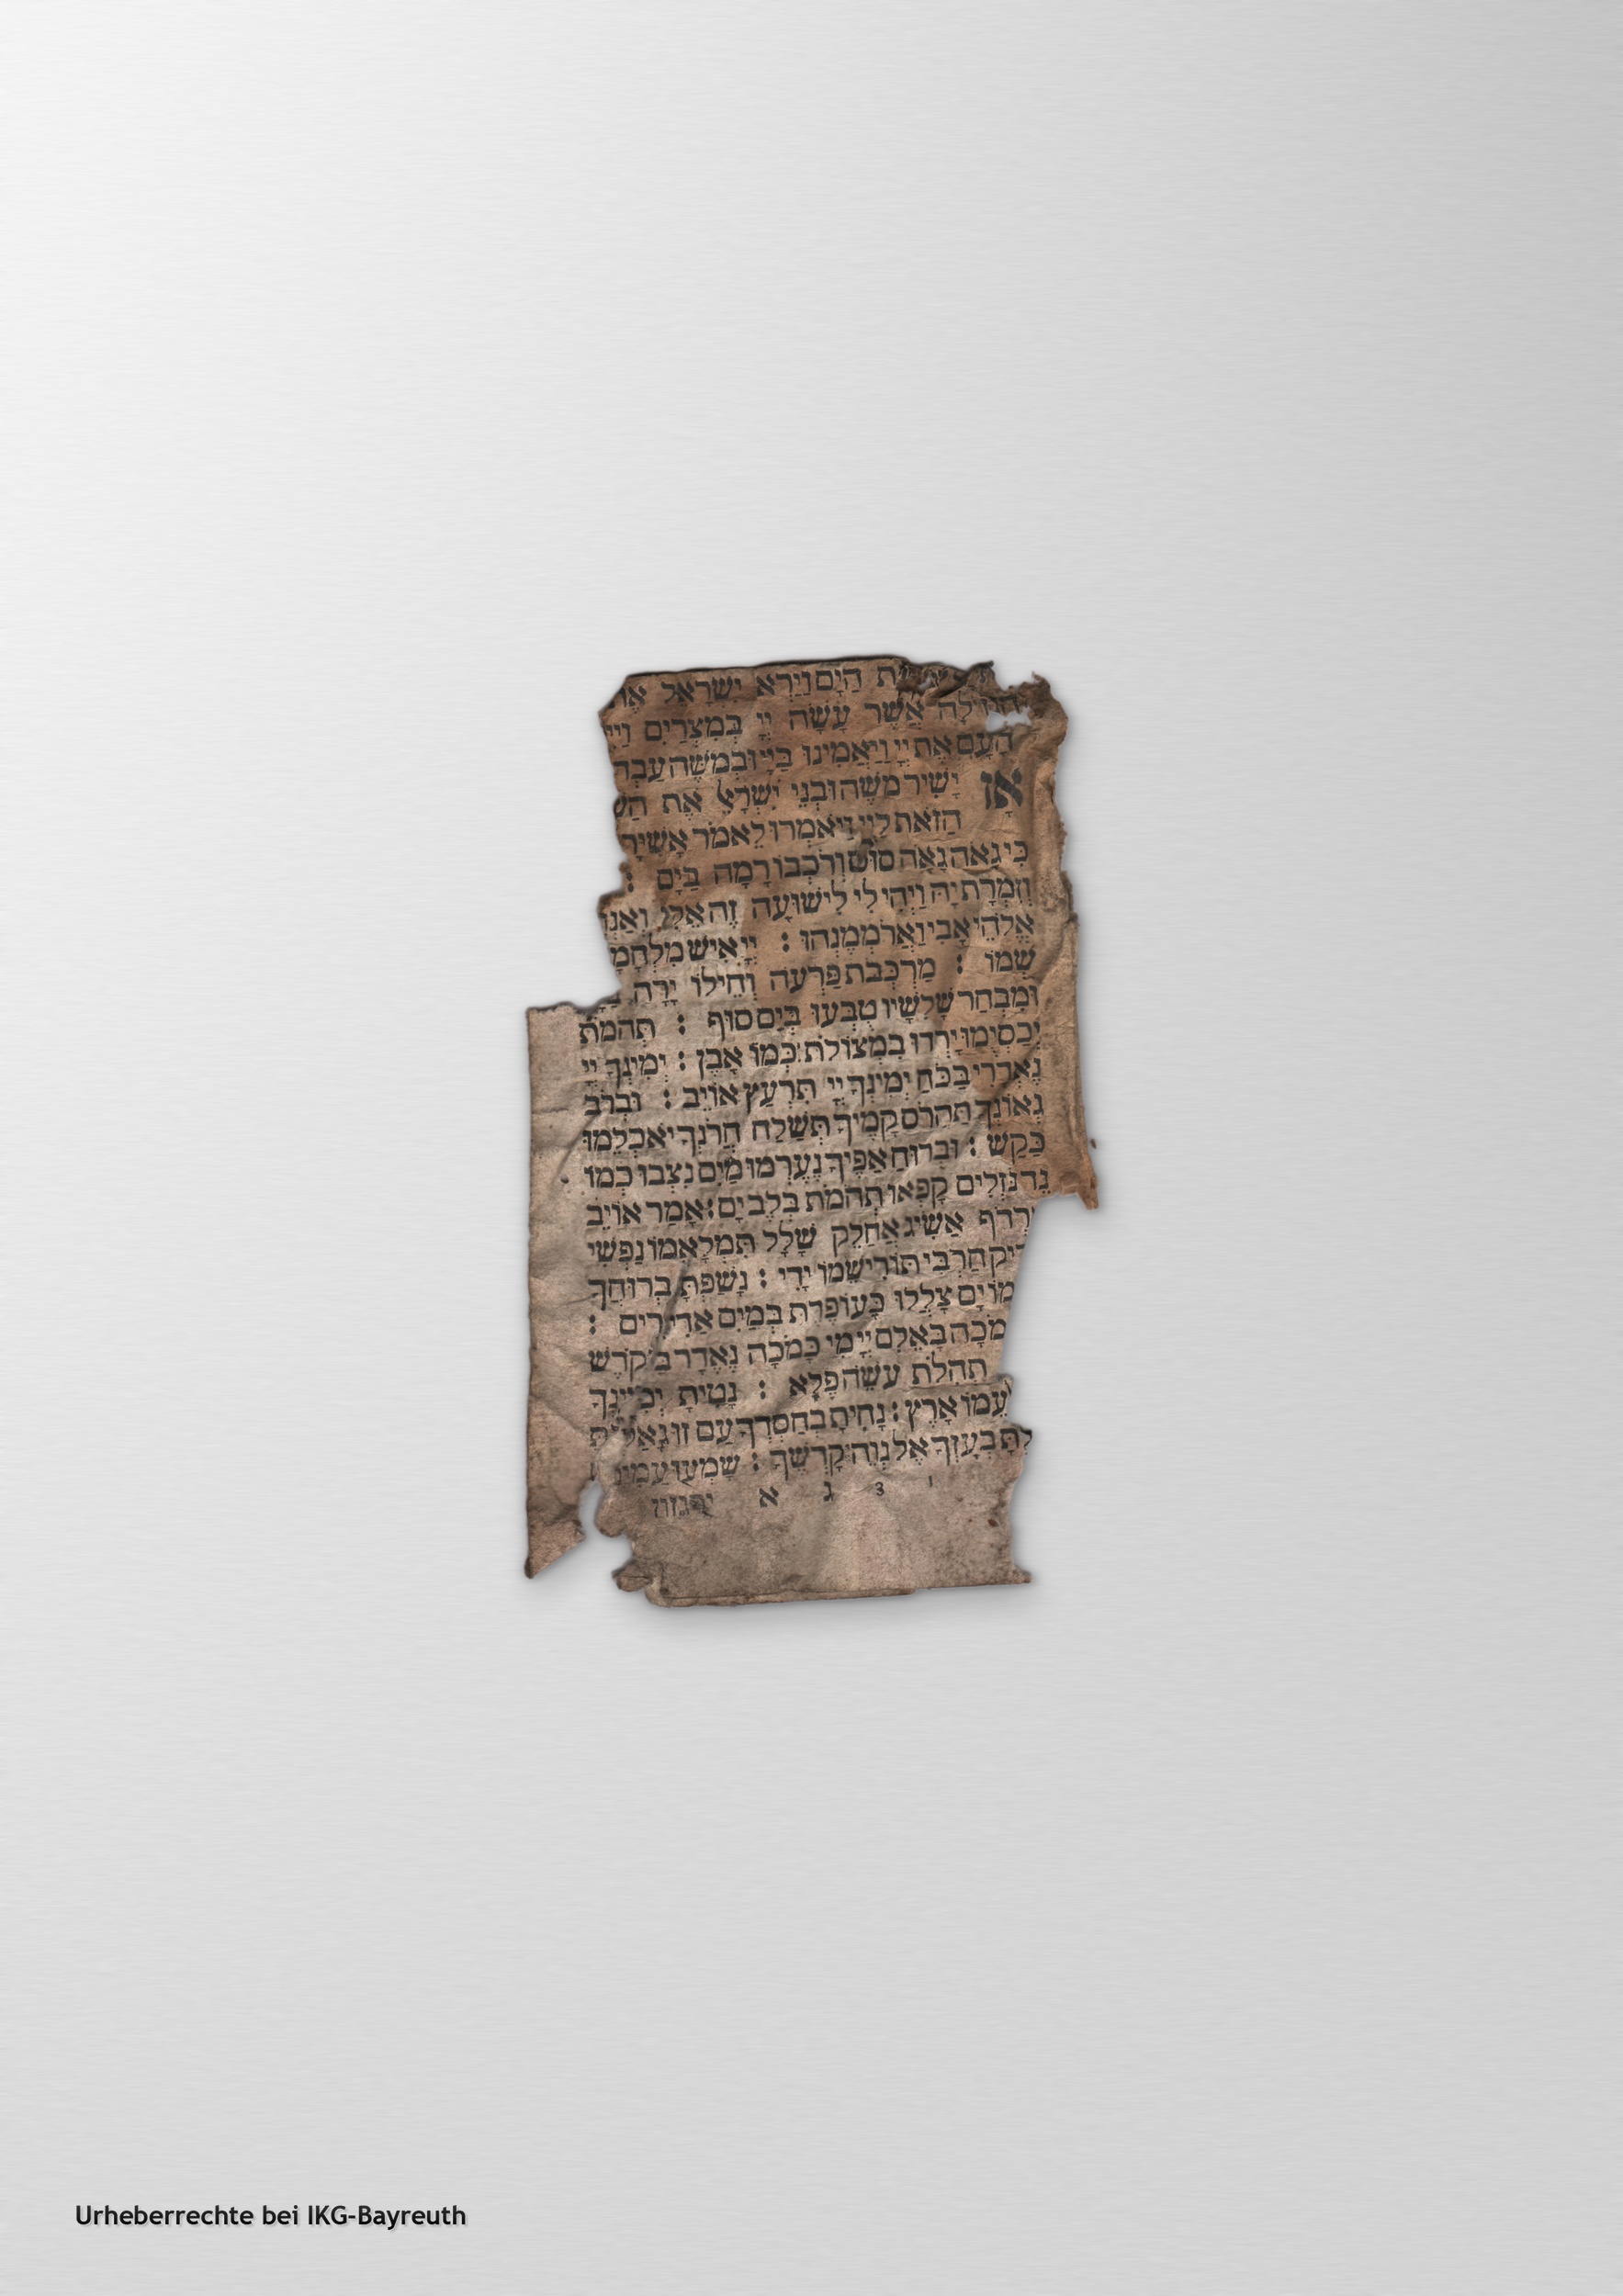 הים וירא ישראל
אשר עשה יי במצרים
העם את יי ויאמינו ביי ובמשה
אז ישיר משה ובני את
הזאת ליי ויאמרו לאמר
כי גאה גאה סוס ורכבו רמה בים :
וזמרת יה ויהי לי לישועה זה אלי
אלהי אבי וארממנהו : יי איש
שמו : מרכבת פרעה וחילו ירה
ומבחר שלשיו טבעו בים סוף : תהמת
יכסימו ירדו במצולת כמו אבן : ימינך יי
נאדרי בכח ימינך יי תרעץ אויב : וברב
גאונך תהרס קמיך תשלח חרנך יאכלמו
כקש : וברוח אפיך נערמו מים נצבו כמו
נד נזלים קפאו תהמת בלב ים : אמר אויב
אשיג אחלק שלל תמלאמו נפשי
חרבי תורישמו ידי : נשפת ברוחך
ים צללו כעופרת במים אדירים :
באלם יי מי כמכה נאדר בקדש
תהלת עשה פלא : נטית ימינך
ארץ : נחית בחסדך עם זו
בעזך אל נוה קדשך : שמעו
ג א ירגזון
Urheberrechte bei IKG-Bayreuth